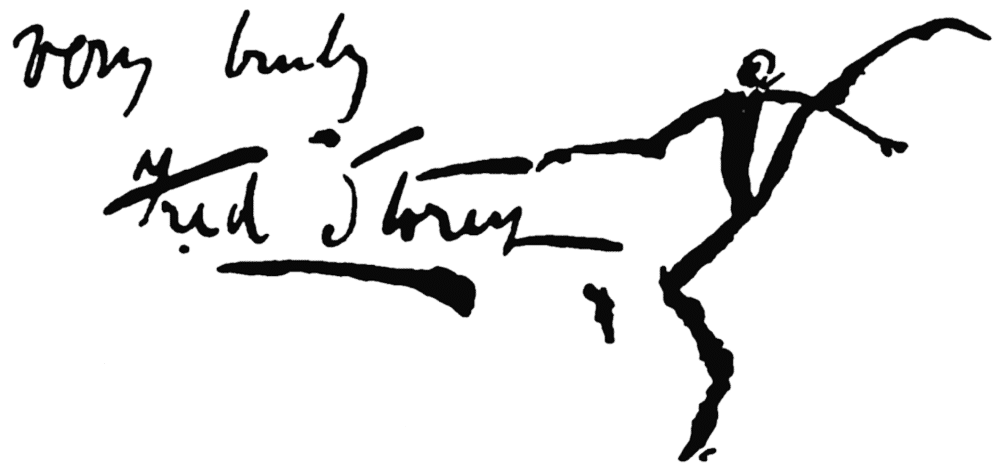 very truly
Fred Storey